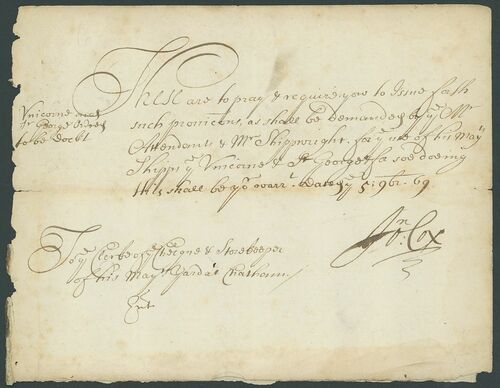 Unicorne and
St George Ordred
to be dockt
These are to pray & require you to Issue forth
such provicons, as shall be demanded by ye Mr
Attendants & Mr Shipwright, for ye use of his Mays
Shipps ye Unicorne & St George & soe doeing
this shall be yor warrt. dated ye 5: 9br. 69
Jon. Cox
To ye Clerke of ye & Storekeeper
of his Mays Yard at Chatham